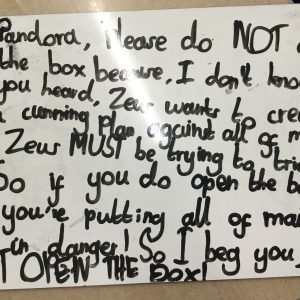 Pandora, Please do NOT
the box because, I don't know
you heard, Zeus wants to crea
a cunning plan against all of m
Zeus MUST be trying to tri
So if you do open the b
you're putting all of ma
in danger! So I beg you
T OPEN THE BOX!